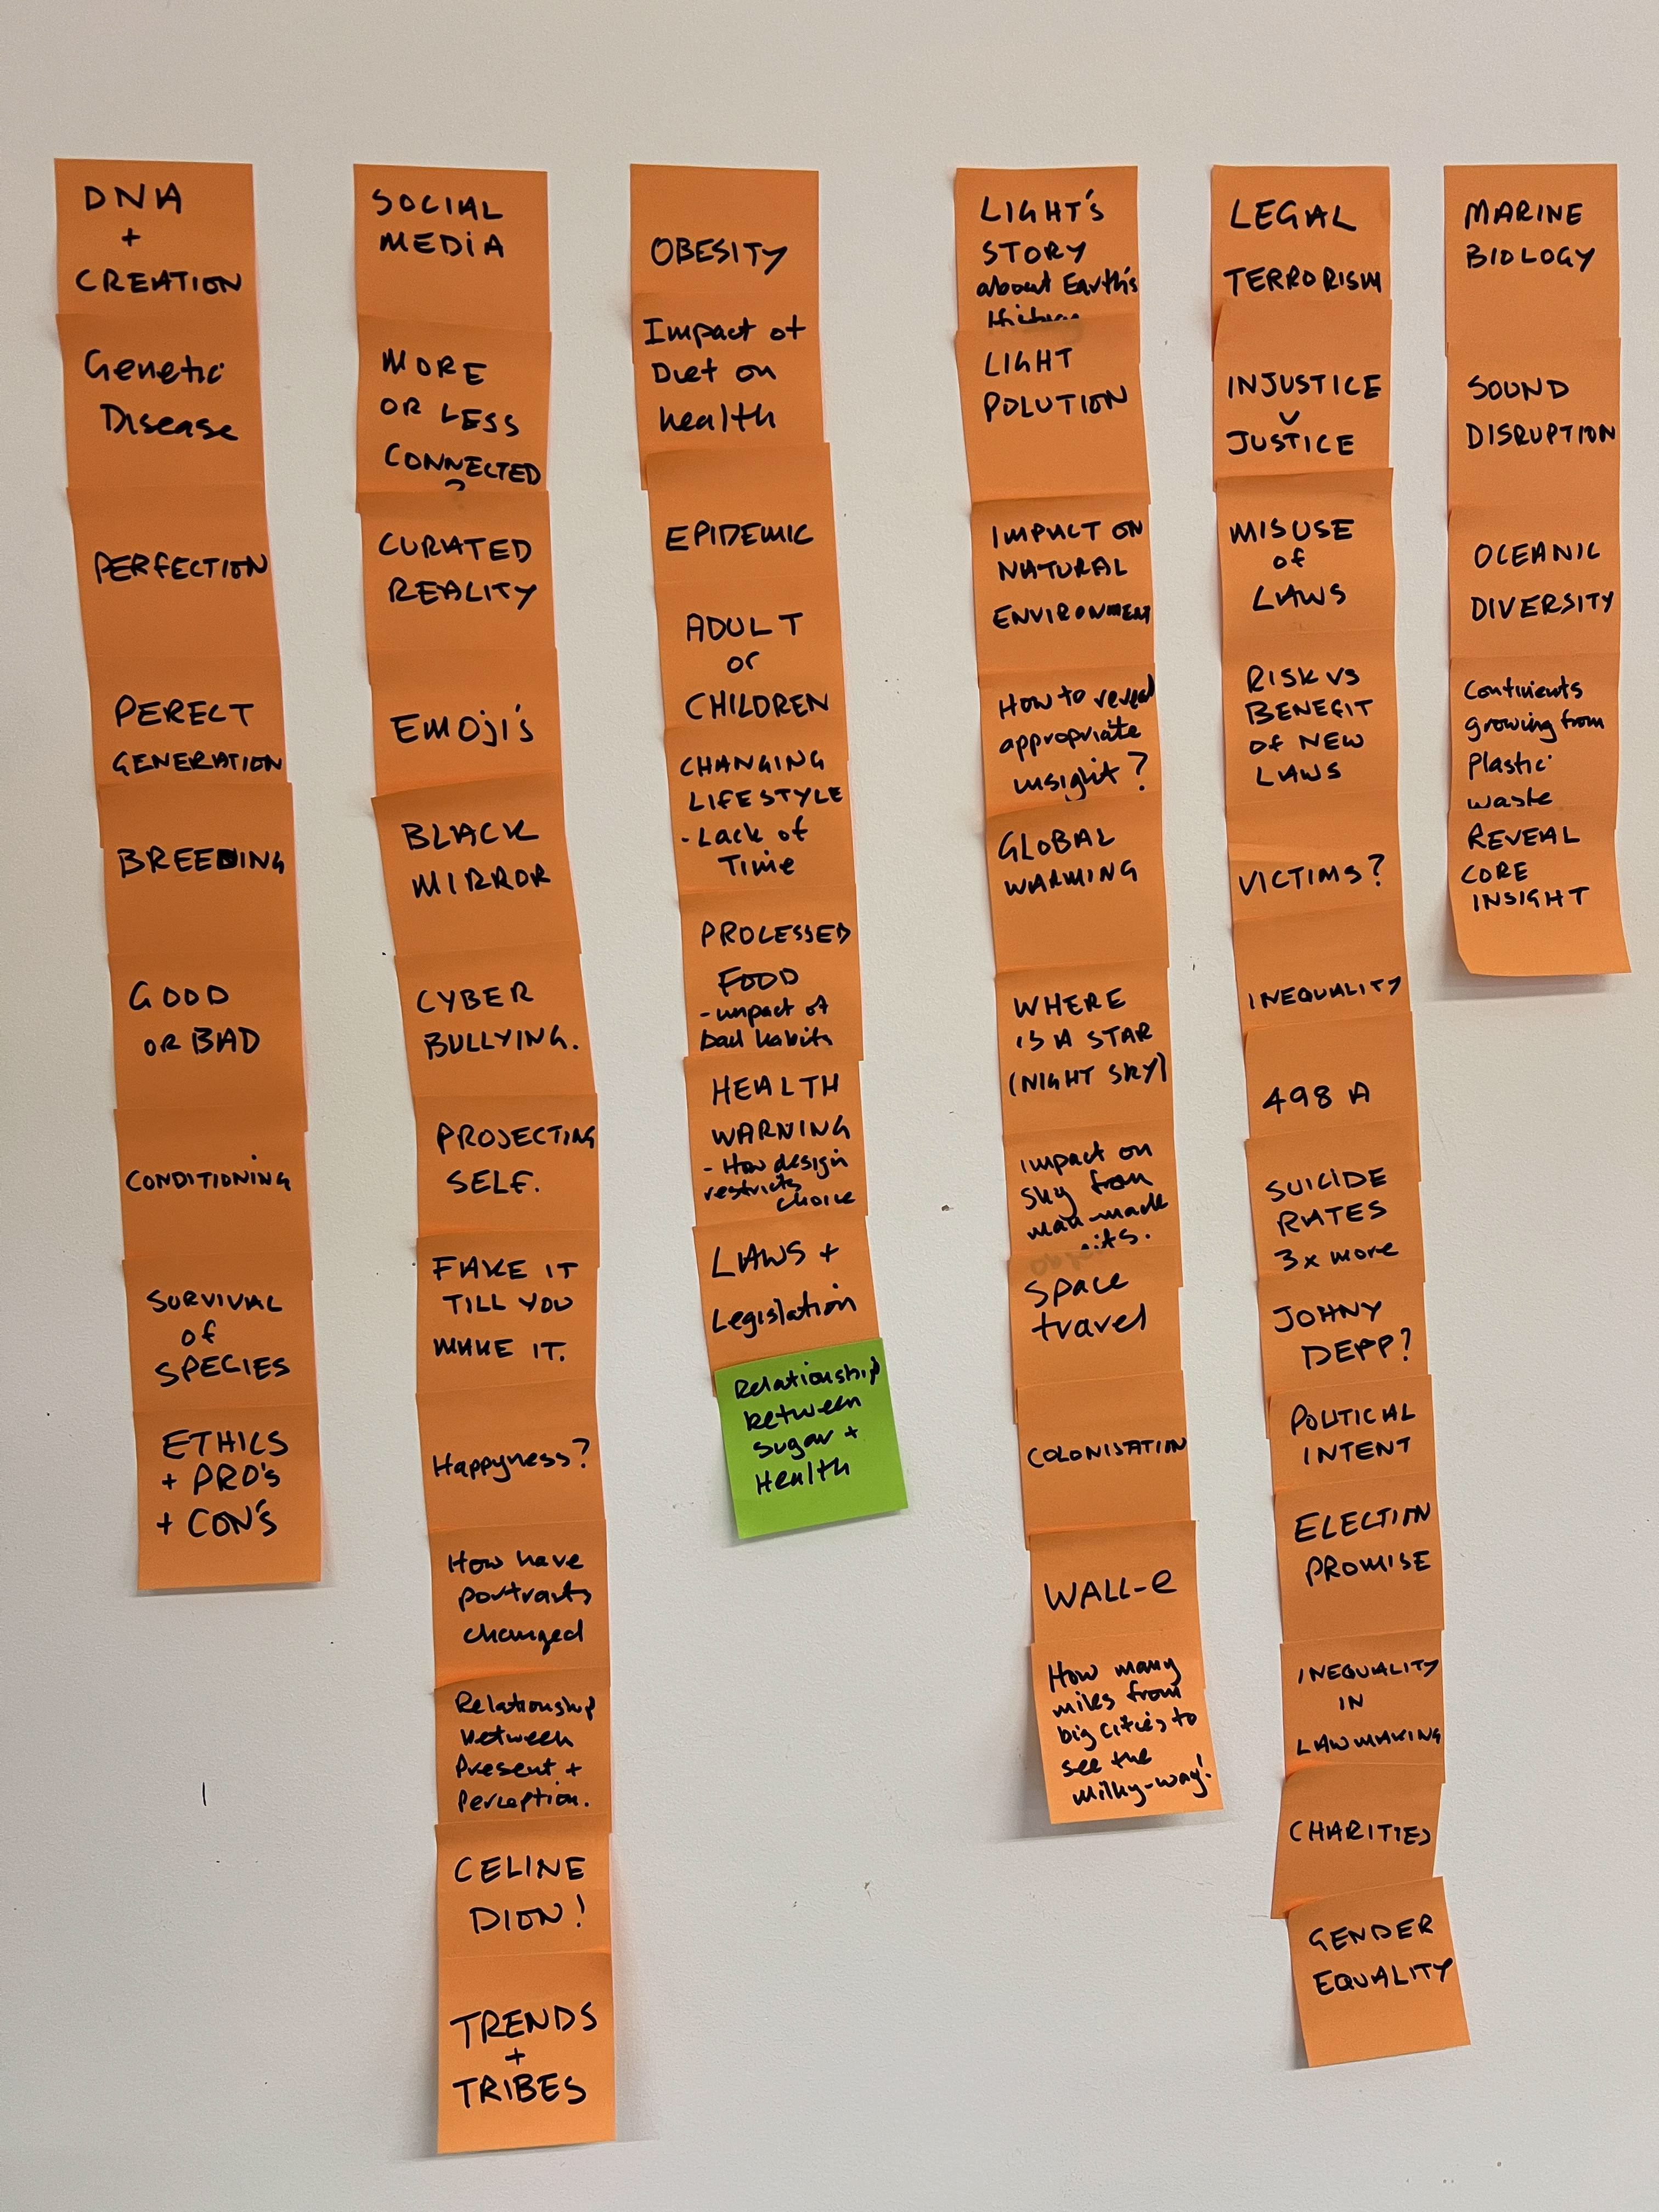 DNA
+
CREATION
Genetic
Disease
PERFECTION
PERECT
GENERATION
BREEDING
GOOD
OR BAD
CONDITIONING
SURVIVAL
of
SPECIES
ETHICS
+ PRO's
+ CON'S
SOCIAL
MEDIA
MORE
OR LESS
CONNECTED
?
CURATED
REALITY
EMOji's
BLACK
MIRROR
CYBER
BULLYING.
PROJECTING
SELF.
FAKE IT
TILL YOU
MAKE IT.
Happyness?
How have
portraits
changed
Relationship
between
Present +
Perception.
CELINE
DION!
TRENDS
+
TRIBES
OBESITY
Impact of
Diet on
health
EPIDEMIC
ADULT
or
CHILDREN
CHANGING
LIFESTYLE
- Lack of
Time
PROCESSED
FOOD
- impact of
bad habits
HEALTH
WARNING
- How design
restricts
choice
LAWS +
Legislation
Relationship
between
sugar +
Health
LIGHT'S
STORY
about Earth's
History
LIGHT
POLUTION
IMPACT ON
NATURAL
ENVIRONMENT
How to reveal
appropriate
insight?
GLOBAL
WARMING
WHERE
IS A STAR
(NIGHT SKY)
Impact on
sky from
man-made
Space
travel
COLONISATION
WALL-e
How many
miles from
big cities to
see the
milky-way!
LEGAL
TERRORISM
INJUSTICE
v
JUSTICE
MISUSE
of
LAWS
RISK VS
BENEFIT
Of NEW
LAWS
VICTIMS?
INEQUALITY
498 A
SUICIDE
RATES
3x more
JOHNY
DEPP?
POLITICAL
INTENT
ELECTION
PROMISE
INEQUALITY
IN
LAWMAKING
CHARITIES
GENDER
EQUALITY
MARINE
BIOLOGY
SOUND
DISRUPTION
OCEANIC
DIVERSITY
Continents
growing from
Plastic
waste
REVEAL
CORE
INSIGHT